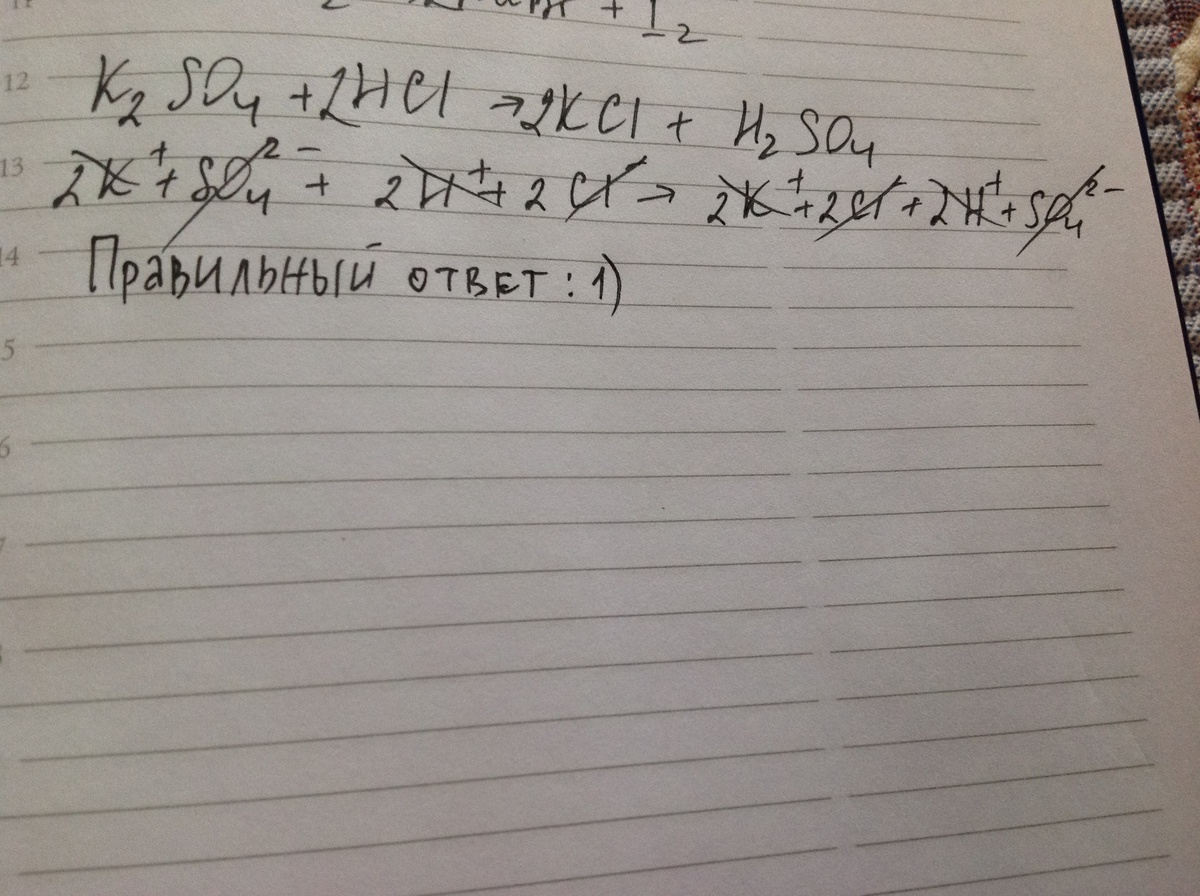 + I₂
12
K₂SO₄ + 2HCl → 2KCl + H₂SO₄
13
2K⁺ + SO₄²⁻ + 2H⁺ + 2Cl⁻ → 2K⁺ + 2Cl + 2H⁺ + SO₄²⁻
14
Правильный ответ: 1)
5
6
7